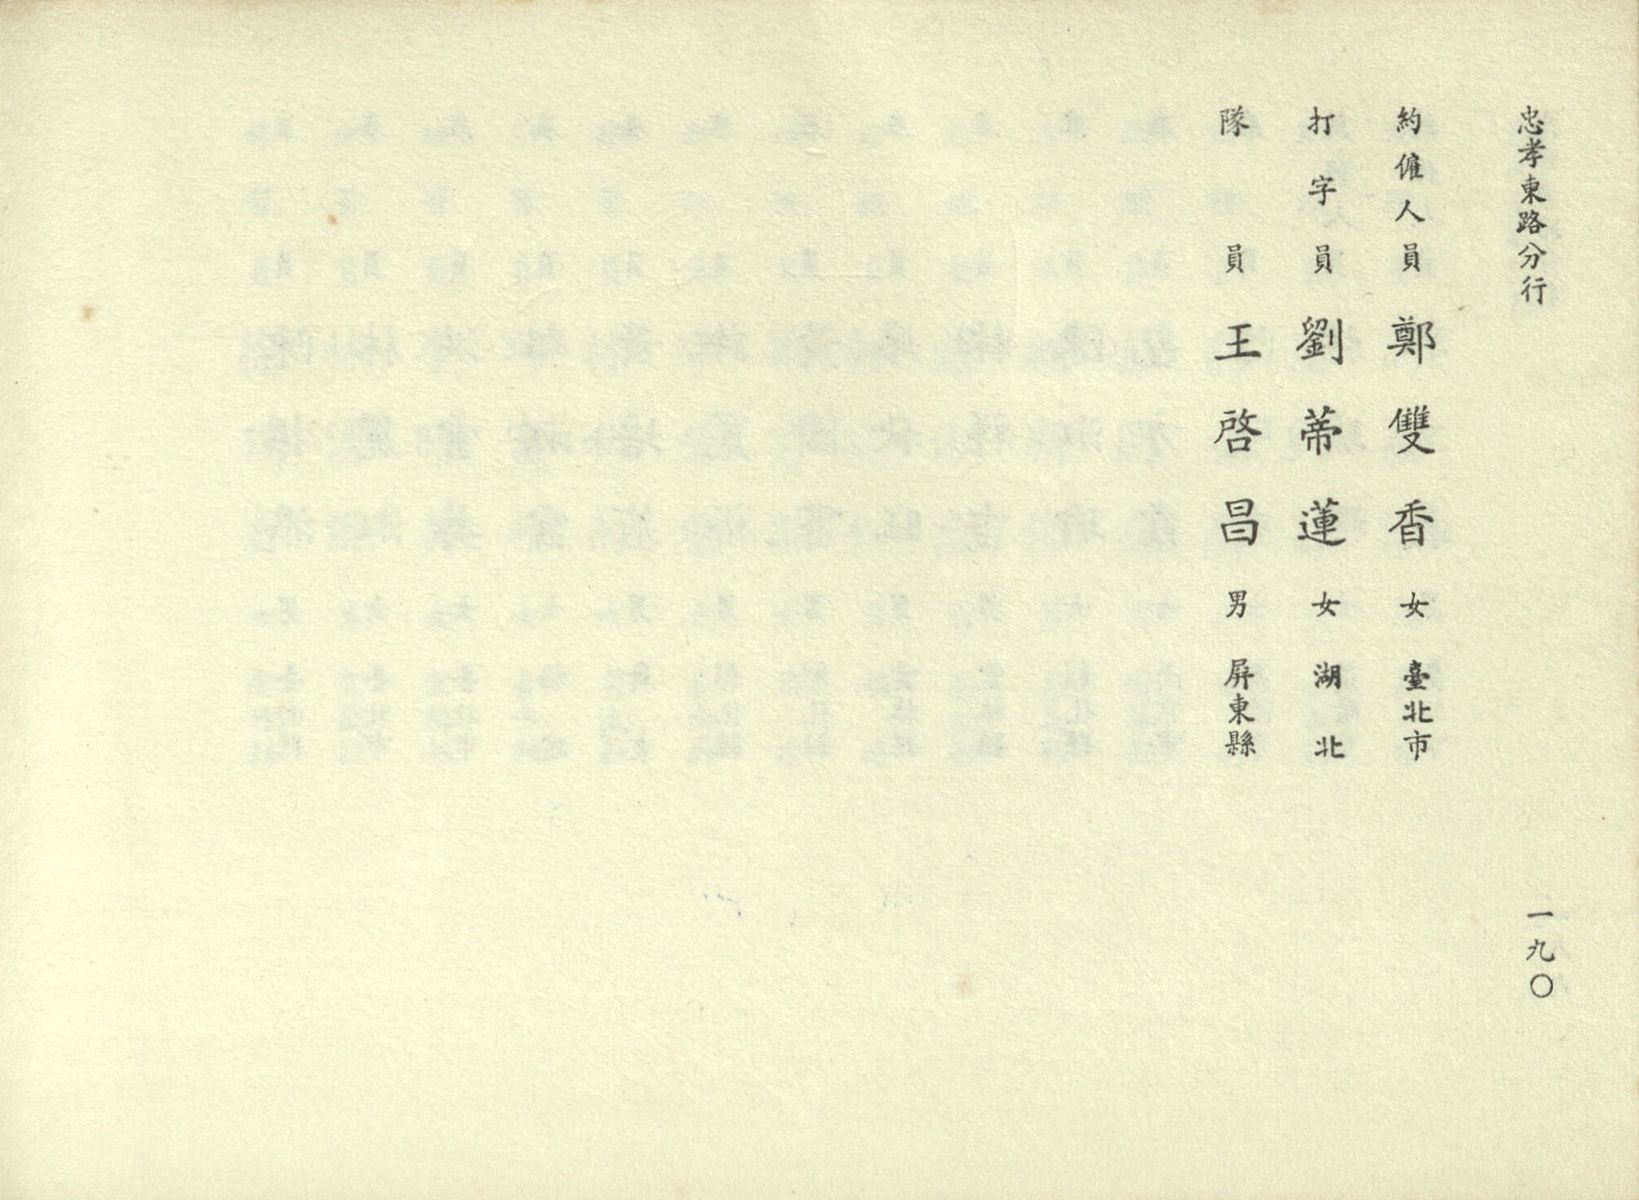 忠孝東路分行
一九〇
約僱人員 鄭雙香 女 臺北市
打字員 劉蒂蓮 女 湖北
隊員 王啓昌 男 屏東縣